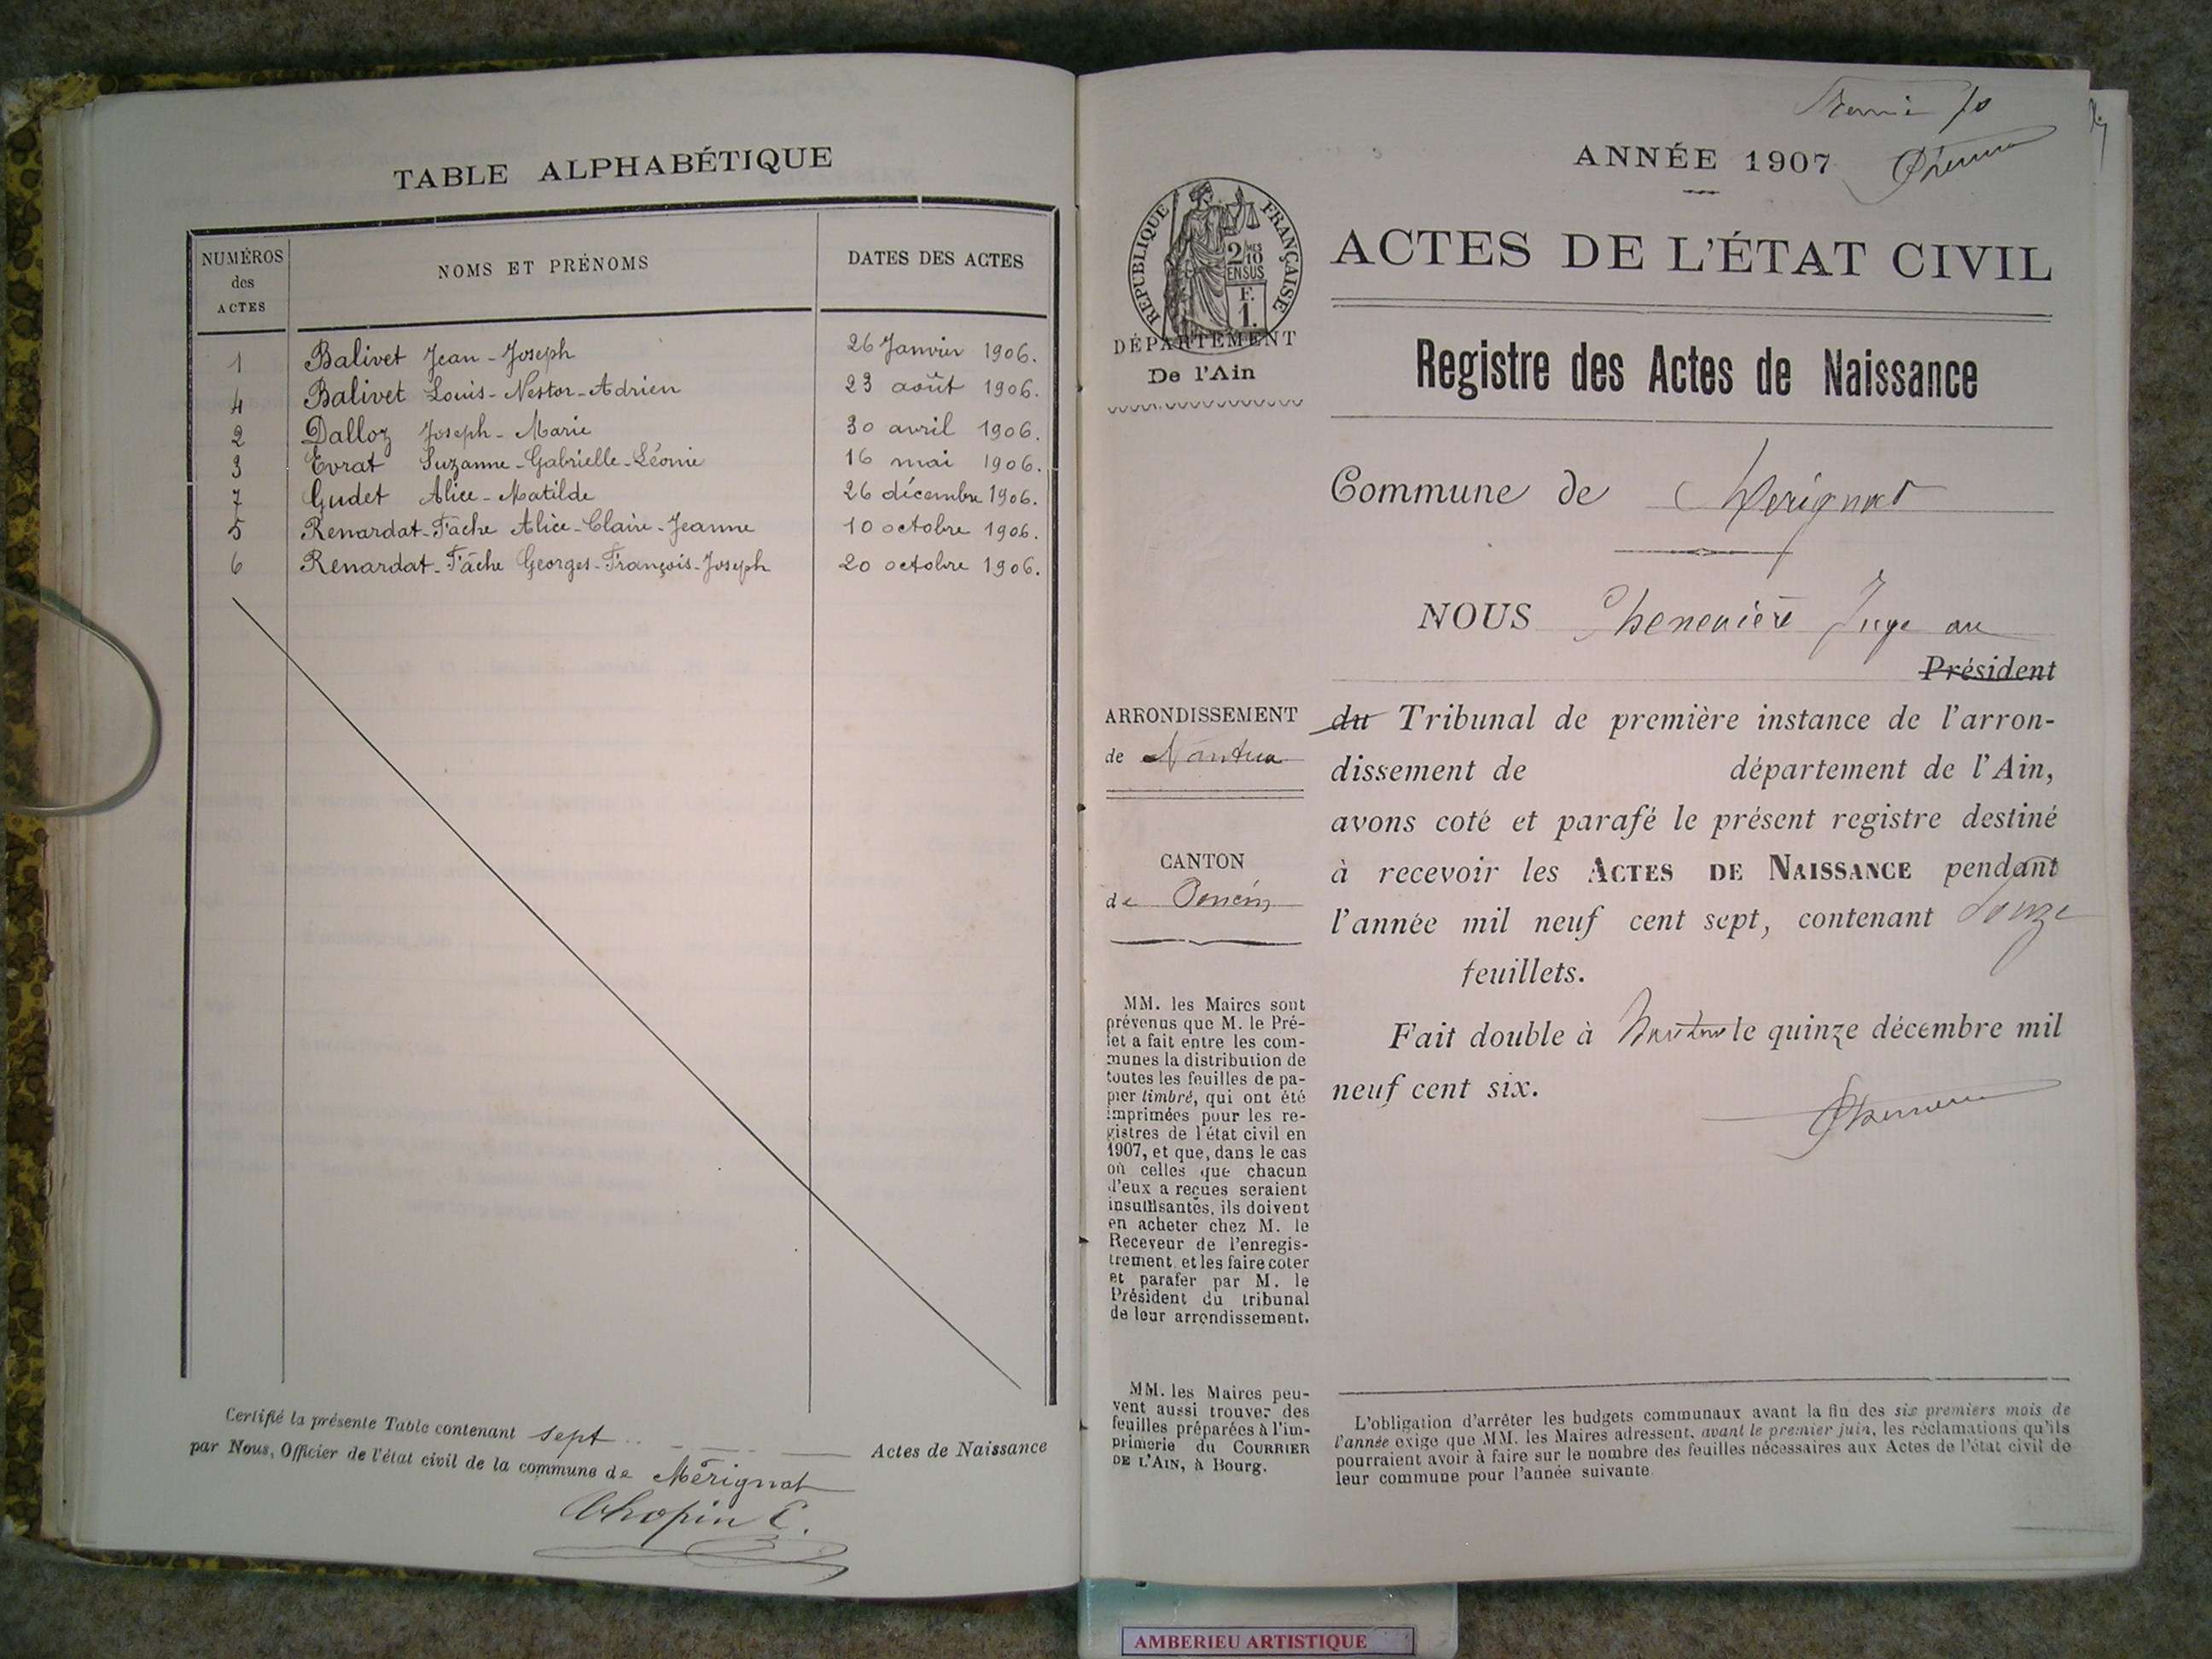 TABLE ALPHABÉTIQUE
NUMÉROS
des
ACTES
NOMS ET PRÉNOMS
DATES DES ACTES
1 Balivet Jean-Joseph 26 Janvier 1906.
4 Balivet Louis-Nestor-Adrien 23 août 1906.
2 Dalloz Joseph-Marie 30 avril 1906.
3 Evrat Suzanne-Gabrielle-Léonie 16 mai 1906.
7 Gudet Alice-Matilde 26 décembre 1906.
5 Renardat-Fache Alice-Claire-Jeanne 10 octobre 1906.
6 Renardat-Fâche Georges-François-Joseph 20 octobre 1906.
Certifié la présente Table contenant sept Actes de Naissance
par Nous, Officier de l'état civil de la commune de Mérignat
Chopin C.
ANNÉE 1907
RÉPUBLIQUE FRANÇAISE
2/10
MES
EN SUS
F.
1.
ACTES DE L'ÉTAT CIVIL
DÉPARTEMENT
De l'Ain
Registre des Actes de Naissance
Commune de Merignat
NOUS Chenevière Juge au
Président
ARRONDISSEMENT
de Nantua
du Tribunal de première instance de l'arron-
dissement de département de l'Ain,
avons coté et parafé le présent registre destiné
à recevoir les ACTES DE NAISSANCE pendant
l'année mil neuf cent sept, contenant douze
feuillets.
Fait double à Nantua le quinze décembre mil
neuf cent six.
CANTON
de Poncin
MM. les Maires sont
prévenus que M. le Pré-
fet a fait entre les com-
munes la distribution de
toutes les feuilles de pa-
pier timbré, qui ont été
imprimées pour les re-
gistres de l'état civil en
1907, et que, dans le cas
où celles que chacun
d'eux a reçues seraient
insuffisantes, ils doivent
en acheter chez M. le
Receveur de l'enregis-
trement et les faire coter
et parafer par M. le
Président du tribunal
de leur arrondissement.
MM. les Maires peu-
vent aussi trouver des
feuilles préparées à l'im-
primerie du COURRIER
DE L'AIN, à Bourg.
L'obligation d'arrêter les budgets communaux avant la fin des six premiers mois de
l'année exige que MM. les Maires adressent, avant le premier juin, les réclamations qu'ils
pourraient avoir à faire sur le nombre des feuilles nécessaires aux Actes de l'état civil de
leur commune pour l'année suivante.
AMBERIEU ARTISTIQUE